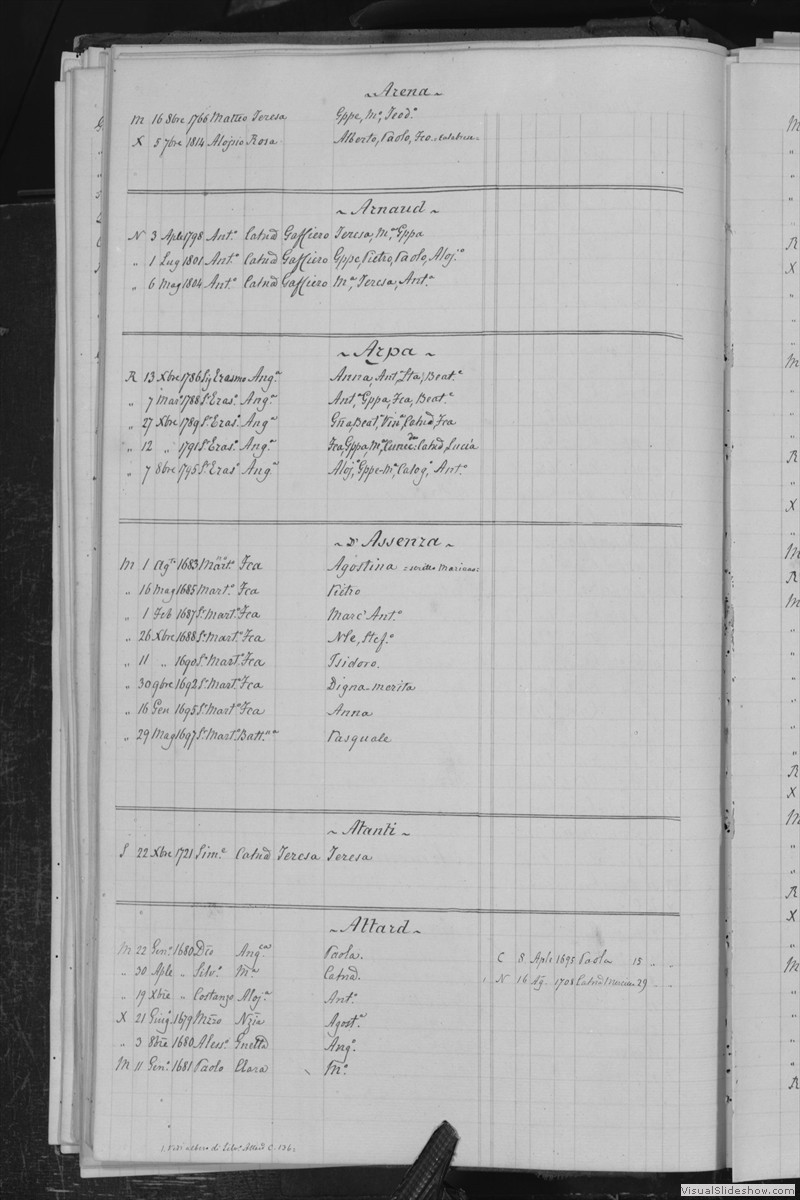 ~ Arena ~
M 16 8bre 1766 Matteo Teresa Gppe, Mª, Teodº
X 5 7bre 1814 Alojsio Rosa Alberto, Paolo, Fco
~ Arnaud ~
N 3 Aple 1798 Antº Catnã Gaffiero Teresa, Mª, Gppa
" 1 Lug 1801 Antº Catnã Gaffiero Gppe, Pietro, Paolo, Alojº
" 6 Mag 1804 Antº Catnã Gaffiero Mª, Teresa, Antª
~ Arpa ~
R 13 Xbre 1786 Erasmo Angª Anna, Antª, Beatº
" 7 Mar 1788 Sr Erasº Angª Antª, Gppa, Fca, Beatº
" 27 Xbre 1789 Sr Erasº Angª Catnã, Fca
" 12 " 1791 Sr Erasº Angª Fca, Gppa, Mª, Catnã, Lucia
" 7 8bre 1795 Sr Erasº Angª Alojº, Gppe-Mª, Calogº, Antº
~ Dr Assenza ~
M 1 Agto 1683 Martº Fca Agostina =scritto Mariano=
" 16 Mag 1685 Martº Fca Pietro
" 1 Feb 1687 Sr Martº Fca Marc' Antº
" 26 Xbre 1688 Sr Martº Fca Nle, Stefº
" 11 " 1690 Sr Martº Fca Isidoro.
" 30 9bre 1692 Sr Martº Fca Digna merita
" 16 Gen 1695 Sr Martº Fca Anna
" 29 Mag 1697 Sr Martº Battªª Pasquale
~ Atanti ~
S 22 Xbre 1721 Simº Catnã Teresa Teresa
~ Attard ~
M 22 Genº 1680 Dco Angca Paola. C 8 Aple 1695 Paolo 15 " "
" 30 Aple " Silvº Mª Catnã. N 16 Ag. 1708 Catnã 29
" 19 Xbre " Costanzo Alojª Antº
X 21 Giugº 1679 Mzro Nzia Agostª
" 3 8bre 1680 Alessº Gnetta Angº
M 11 Genº 1681 Paolo Clara Mª
1. Vedi albero di Silvº Attard C. 136
VisualSlideshow.com